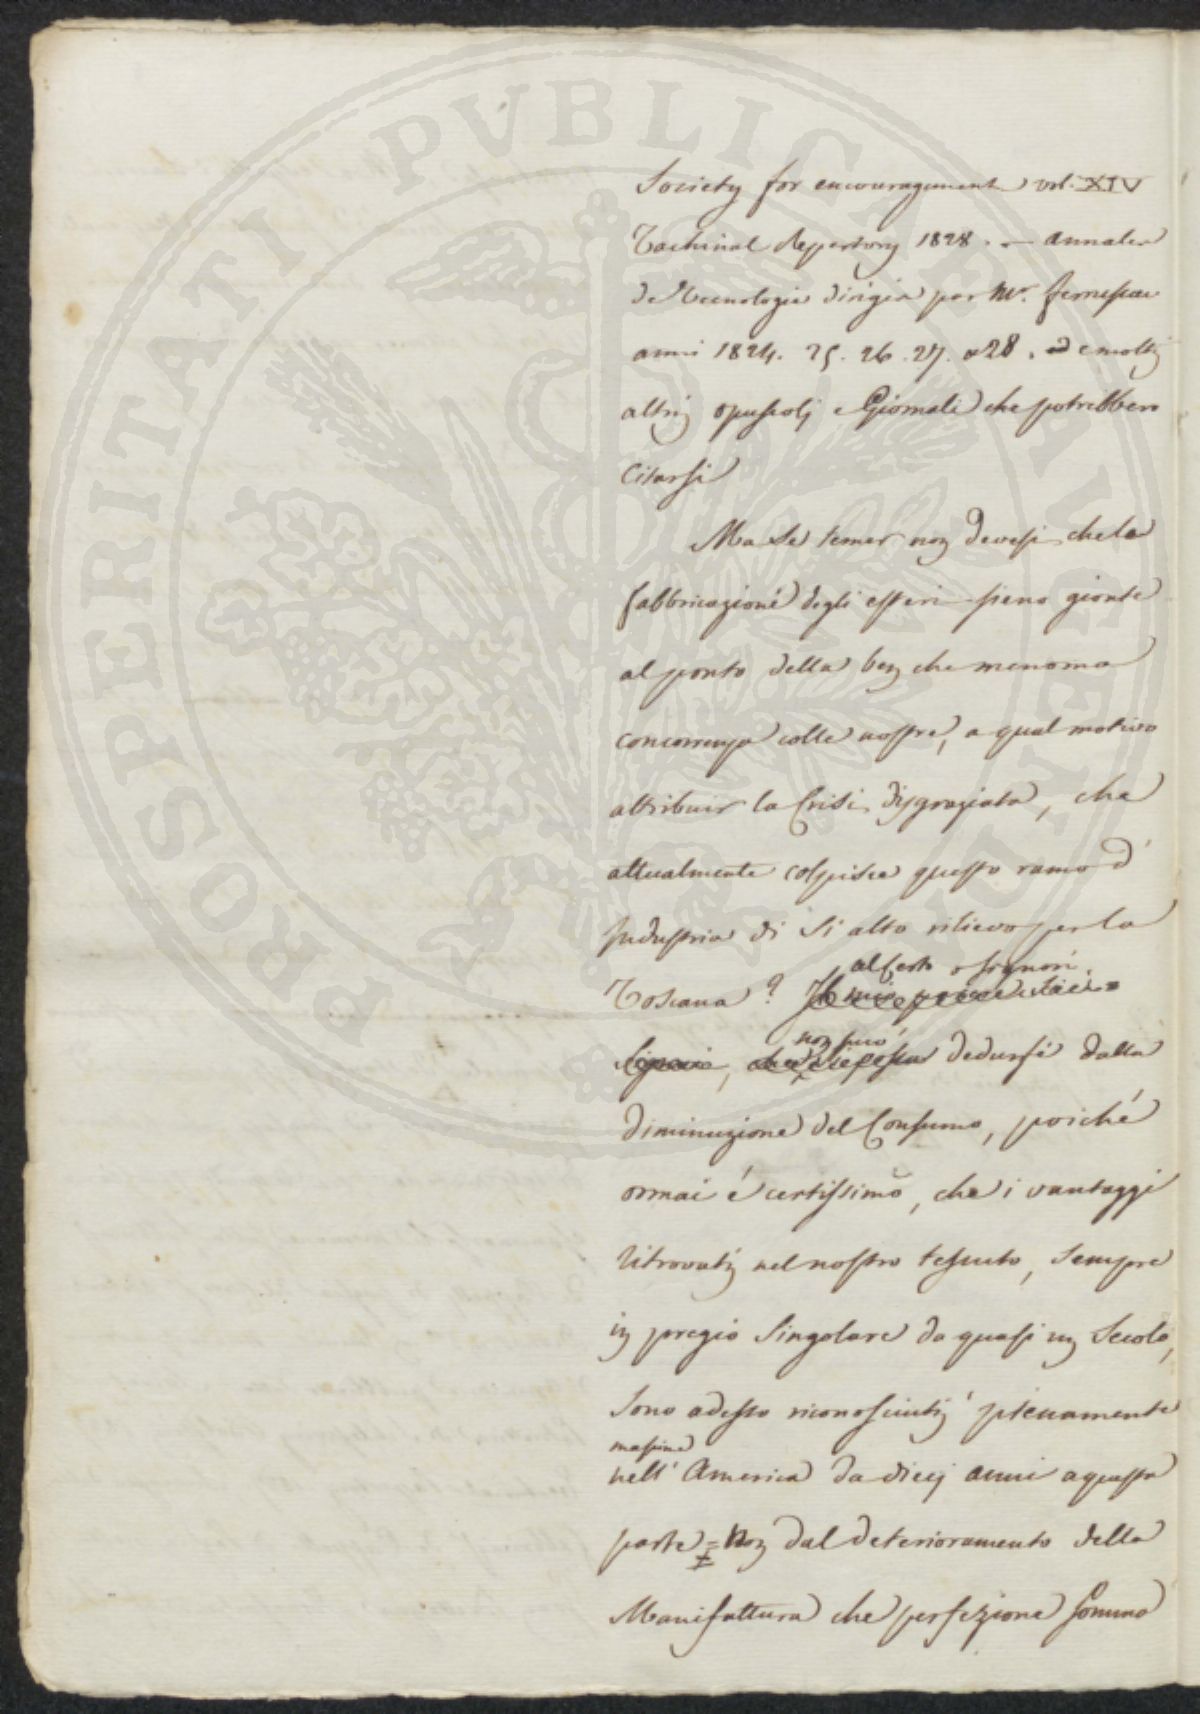 PROSPERITATI PVBLICAE AVGENDAE
Society for encouragement vol. XIV
Technical Repertory 1828. — Annales
de Tecnologie dirigia par Mr.
anni 1824. 25. 26. 27. e 28. e molti
altri opuscoli e Giornali che potrebbero
Citarsi
Ma Se temer non devesi che le
fabbricazioni degli esteri sieno gionte
al ponto della ben che menoma
concorrenza colle nostre, a qual motivo
attribuir la Crisi disgraziata, che
attualmente colpisce questo ramo d'
Industria di Si alto rilievo per la
al Certo o Signori,
Toscana?
non può
Signori, che dedursi dalla
diminuzione del Consumo, poiché
ormai é certissimo, che i vantaggi
ritrovati nel nostro tessuto, Sempre
in pregio Singolare da quasi un Secolo,
Sono adesso riconosciuti pienamente
massime
nell' America da dieci anni a questa
parte = Non dal deterioramento della
Manifattura che perfezione Somma